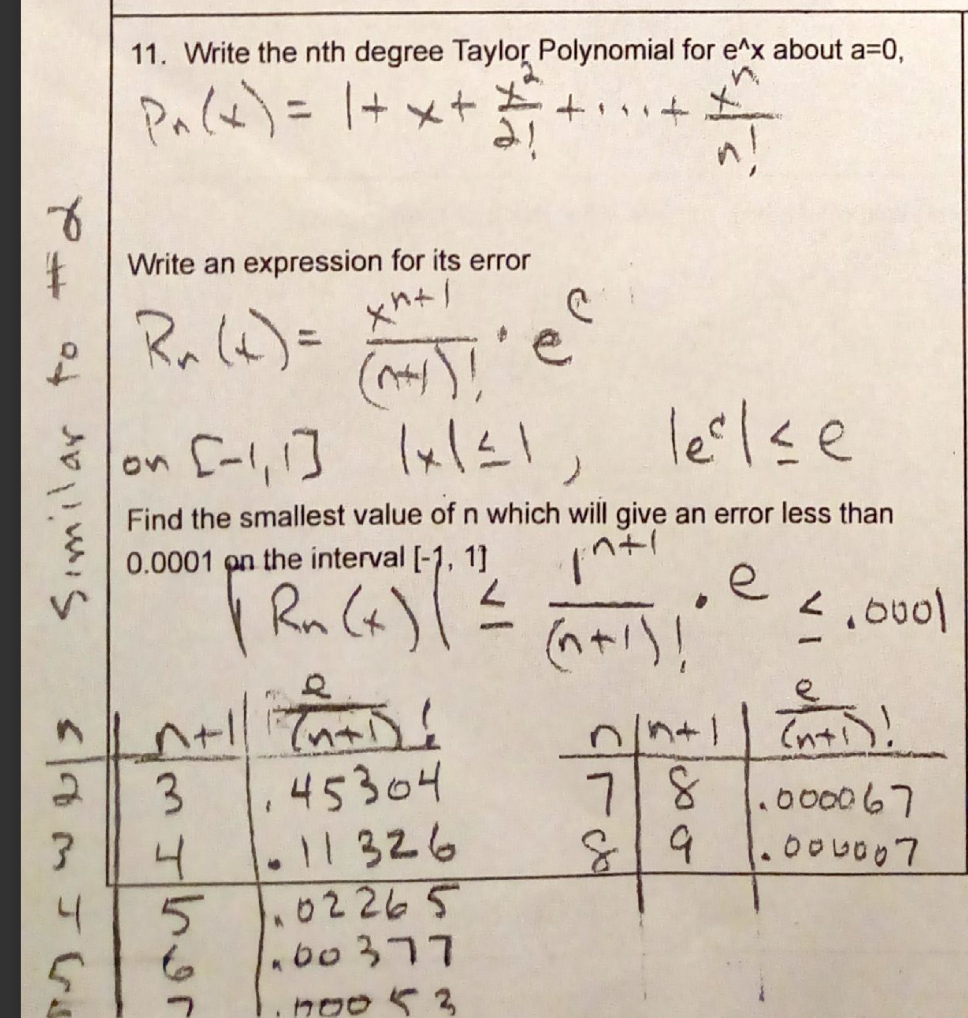 11. Write the nth degree Taylor Polynomial for e^x about a=0,
Pn(x) = 1 + x + x²/2! + .... + xⁿ/n!
Similar to #2
Write an expression for its error
Rn(x) = xⁿ⁺¹/(n+1)! · eᶜ
on [-1,1] |x| ≤ 1, |eᶜ| ≤ e
Find the smallest value of n which will give an error less than
0.0001 on the interval [-1, 1]
|Rn(x)| ≤ 1ⁿ⁺¹/(n+1)! · e ≤ .0001
n | n+1 | e/(n+1)!
2 | 3 | .45304
3 | 4 | .11326
4 | 5 | .02265
5 | 6 | .00377
7 | .00053
n | n+1 | e/(n+1)!
7 | 8 | .000067
8 | 9 | .000007